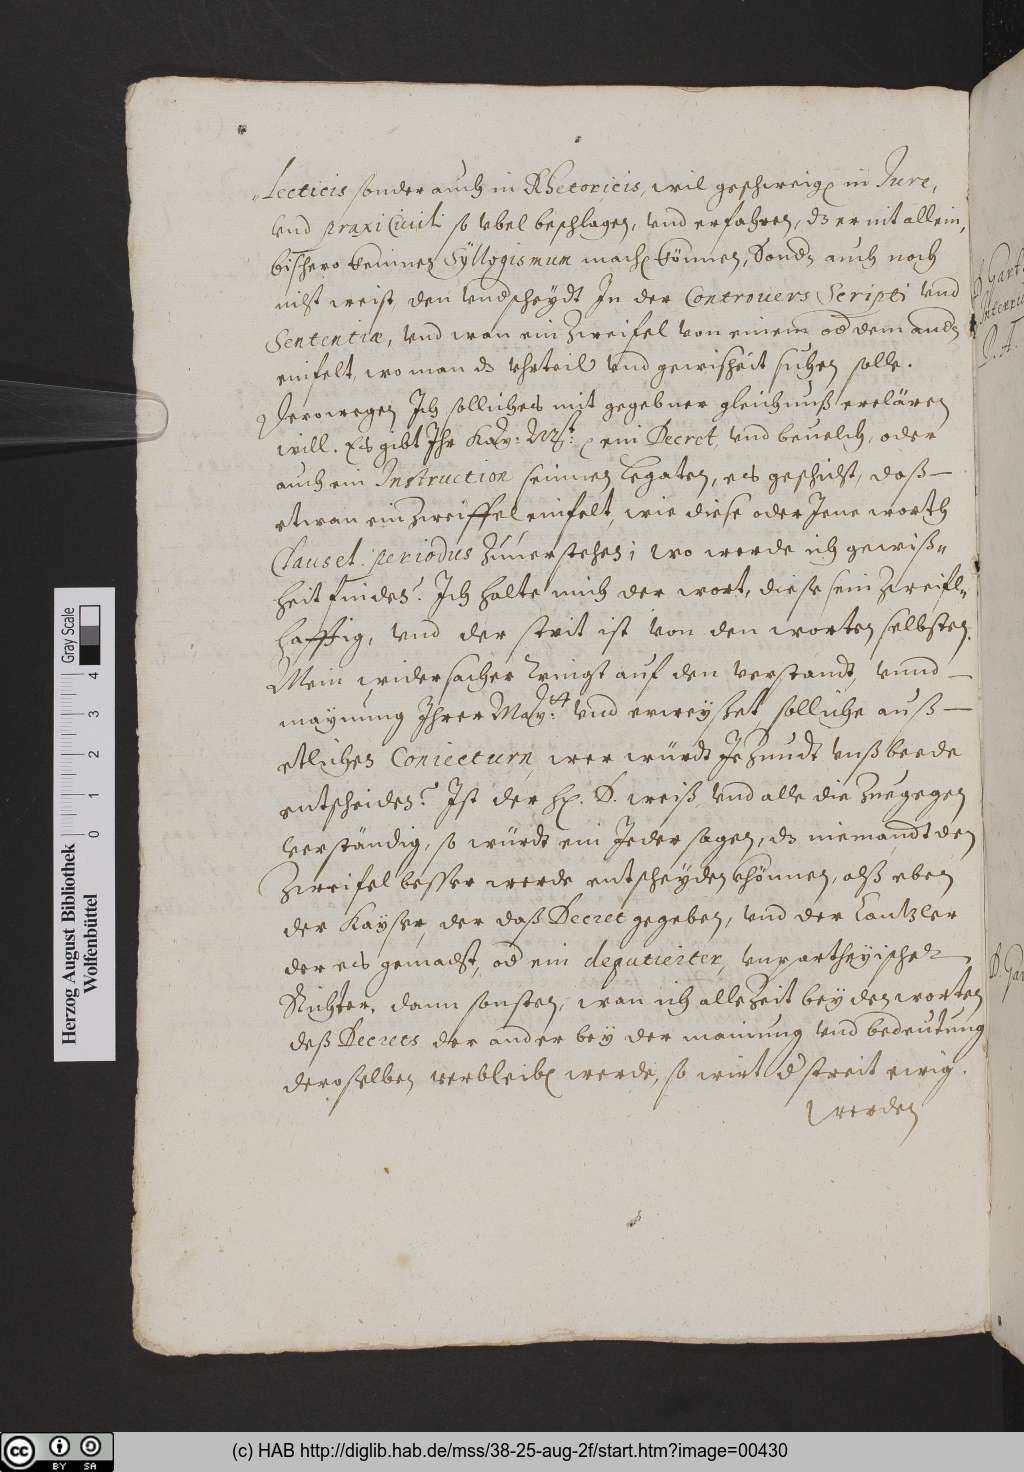 lecticis sonder auch in Rhetoricis, wil geschweig in Jure,
vnd praxi Ciuili so vbel beschlagen, vnd erfahren, ds er nit allein,
bishero keinnen Syllogismum mach können, Sond auch noch
nicht weist den vndscheydt In der Controuers Scripti vnd
Sententiæ, vnd wan ein Zweifel von einem od dem andn
einfelt, wo man ds vhrteil vnd gewisheit suchen solle.
Derowegen Ich solliches mit gegebner gleichnuß erclären
will. Es gibt Ihr Kay: Mst: ein Decret, vnd beuelch, oder
auch ein Instruction seinnen Legaten, es geschicht, daß
etwan ein Zweiffel einfelt, wie diese oder Jene worth
Clausel. periodus Zuuerstehen; wo werde ich gewiß„
heit finden? Ich halte mich der wort, diese sein Zweifl„
hafftig, vnd der strit ist von den worten selbsten.
Mein widersacher tringt auf den verstandt, vnnd
maynung Ihrer May:tt vnd erweyset solliche auß
etlichen Coniecturn, wer würdt Jezundt vnß beede
entscheiden? Ist der H. D. weiß, vnd alle die Zuegegen
verständig, so würdt ein Jeder sagen, ds niemandt den
Zweifel besser werde entscheyden khönnen, alß eben
der Kayser, der daß Decret gegeben, vnd der Cantzler
der es gemacht, od ein deputierter, vnpartheyischer
Richter, dann sonsten, wan ich alle Zeit bey den worten
deß Decrets der ander bey der mainung vnd bedeutung
deroselben verbleib werde, so wirt d streit ewig.
werden
D. Gar
Herzog August Bibliothek
Wolfenbüttel
Gray Scale
0 1 2 3 4
(c) HAB http://diglib.hab.de/mss/38-25-aug-2f/start.htm?image=00430
cc BY SA